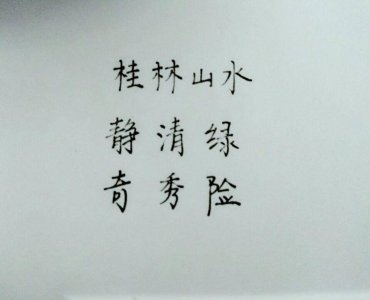 桂林山水
静清绿
奇秀险